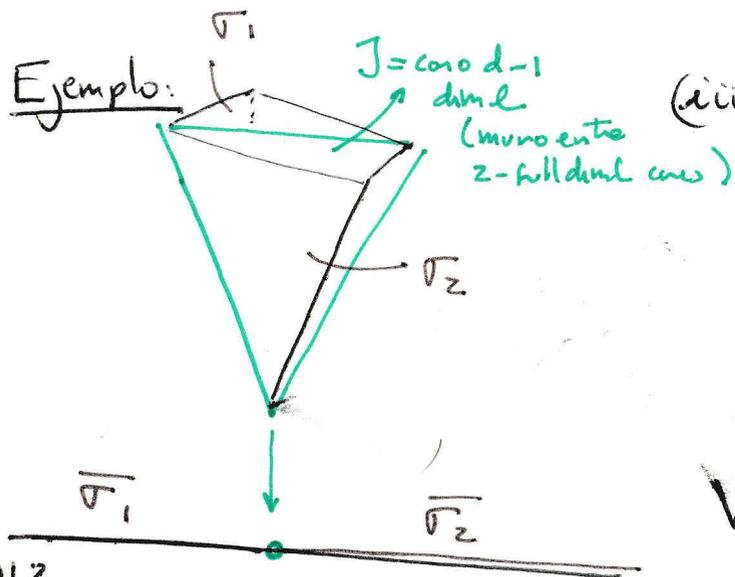 σ1
Ejemplo:
J = cono d-1
diml
(muro entre
2-full diml cones)
(iii
σ2
σ1
σ2